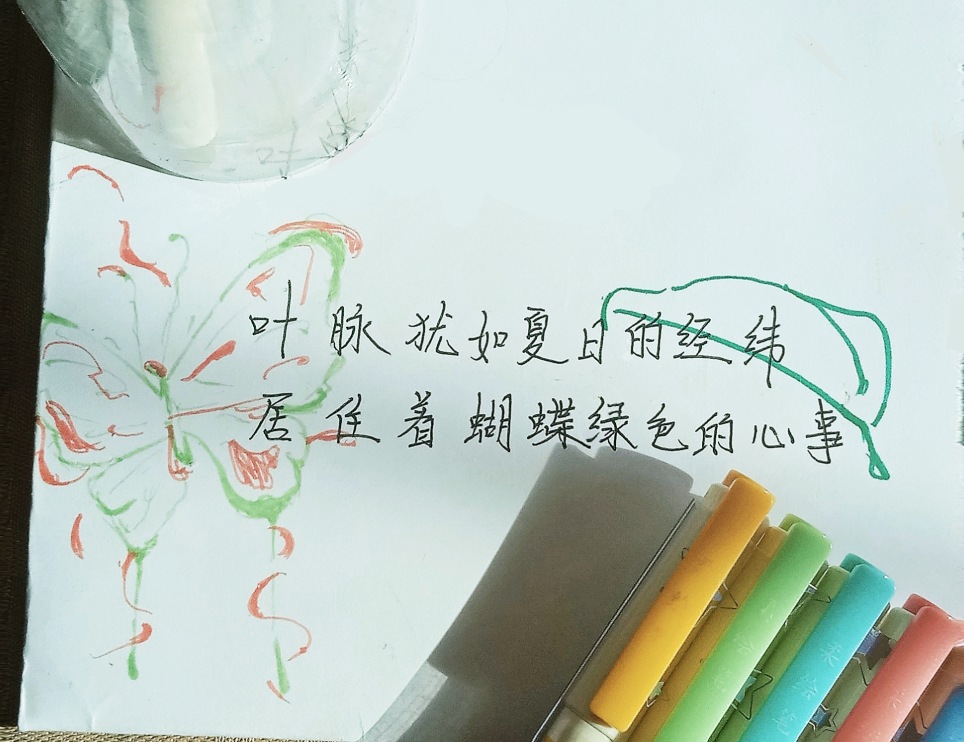 叶脉犹如夏日的经纬
居住着蝴蝶绿色的心事